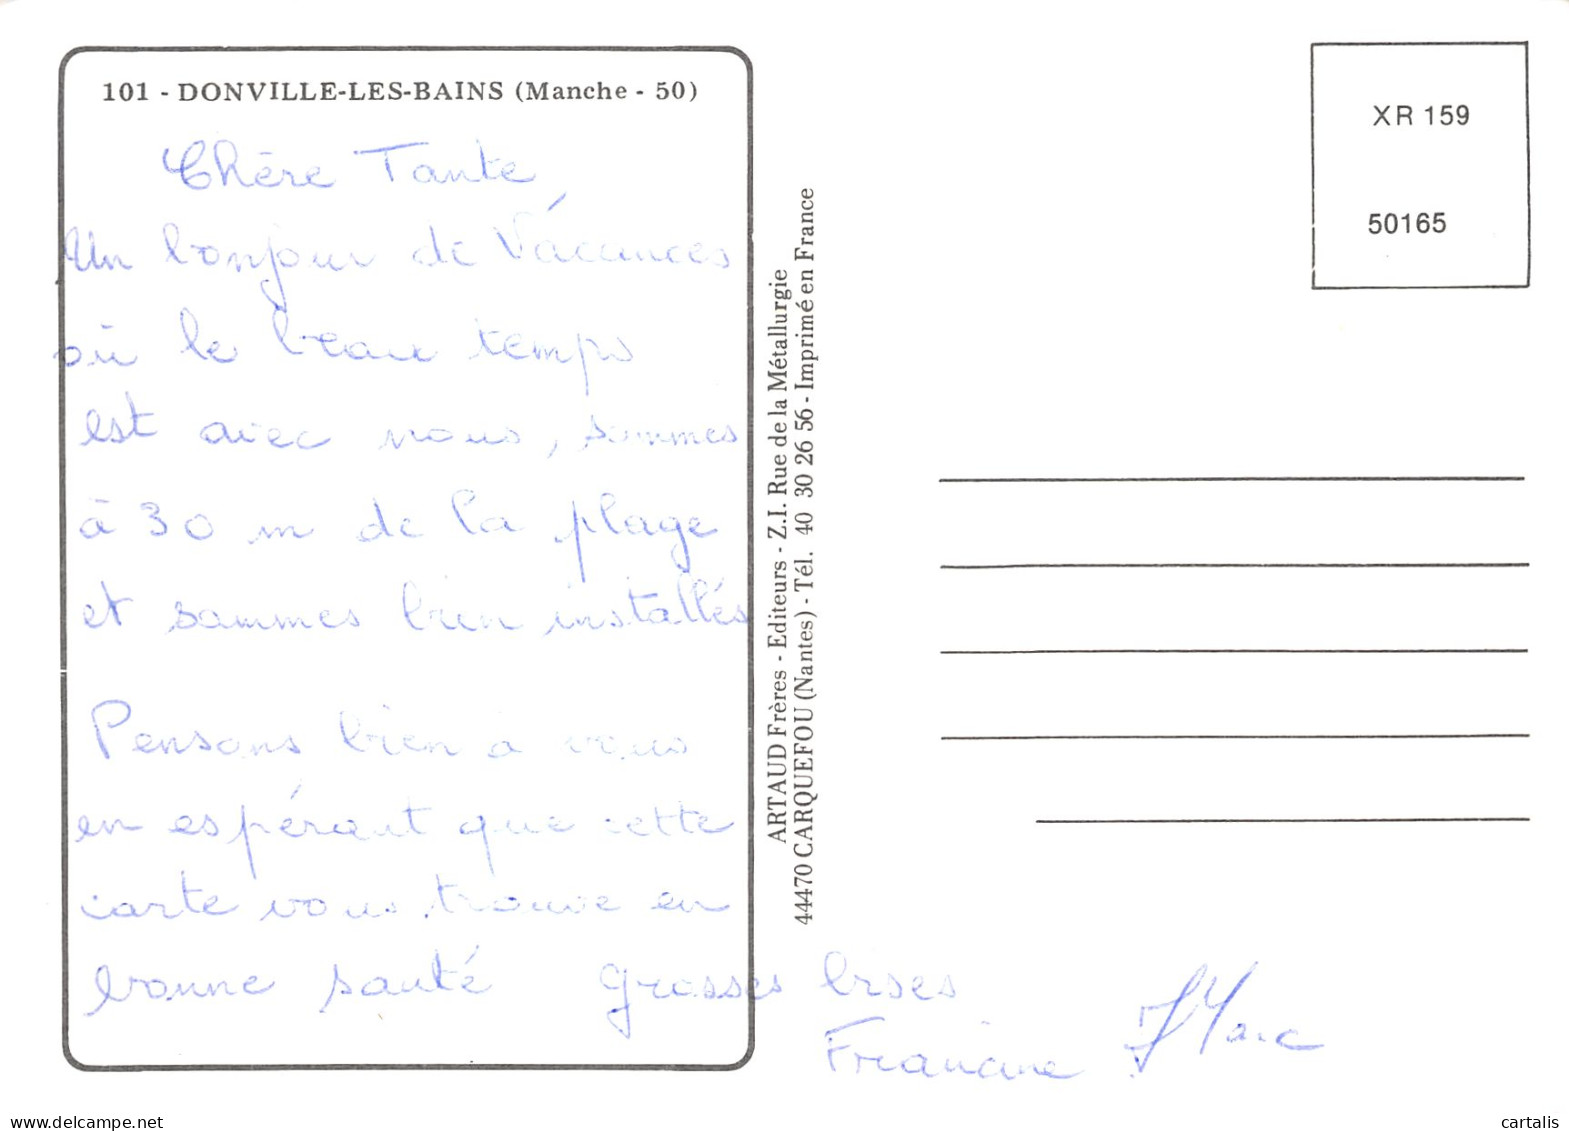 101 - DONVILLE-LES-BAINS (Manche - 50)
Chère Tante,
Un bonjour de Vacances
où le beau temps
est avec nous, sommes
à 30 m de la plage
et sommes bien installés
Pensons bien à vous
en espérant que cette
carte vous trouve en
bonne santé Grosses bises
Francine J Marc
ARTAUD Frères - Editeurs - Z.I. Rue de la Métallurgie
44470 CARQUEFOU (Nantes) - Tél. 40 30 26 56 - Imprimé en France
XR 159
50165
www.delcampe.net
cartalis